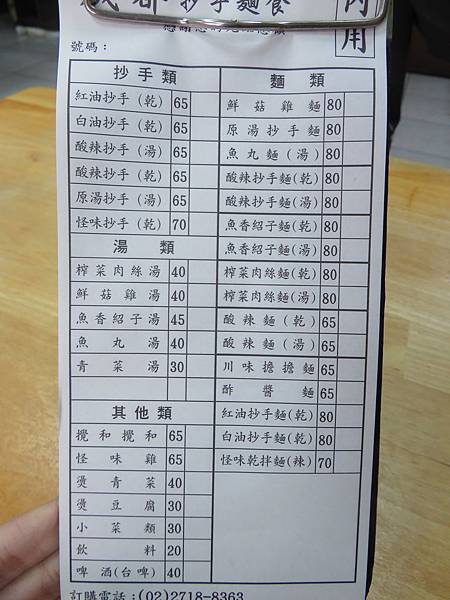 抄手麵食
內用
號碼：
抄手類
紅油抄手(乾) 65
白油抄手(乾) 65
酸辣抄手(湯) 65
酸辣抄手(乾) 65
原湯抄手(湯) 65
怪味抄手(乾) 70
湯類
榨菜肉絲湯 40
鮮菇雞湯 40
魚香紹子湯 45
魚丸湯 40
青菜湯 30
其他類
攪和攪和 65
怪味雞 65
燙青菜 40
燙豆腐 30
小菜類 30
飲料 20
啤酒(台啤) 40
麵類
鮮菇雞麵 80
原湯抄手麵 80
魚丸麵(湯) 80
酸辣抄手麵(乾) 80
酸辣抄手麵(湯) 80
魚香紹子麵(乾) 80
魚香紹子麵(湯) 80
榨菜肉絲麵(乾) 80
榨菜肉絲麵(湯) 80
酸辣麵(乾) 65
酸辣麵(湯) 65
川味擔擔麵 65
酢醬麵 65
紅油抄手麵(乾) 80
白油抄手麵(乾) 80
怪味乾拌麵(辣) 70
訂購電話：(02)2718-8363